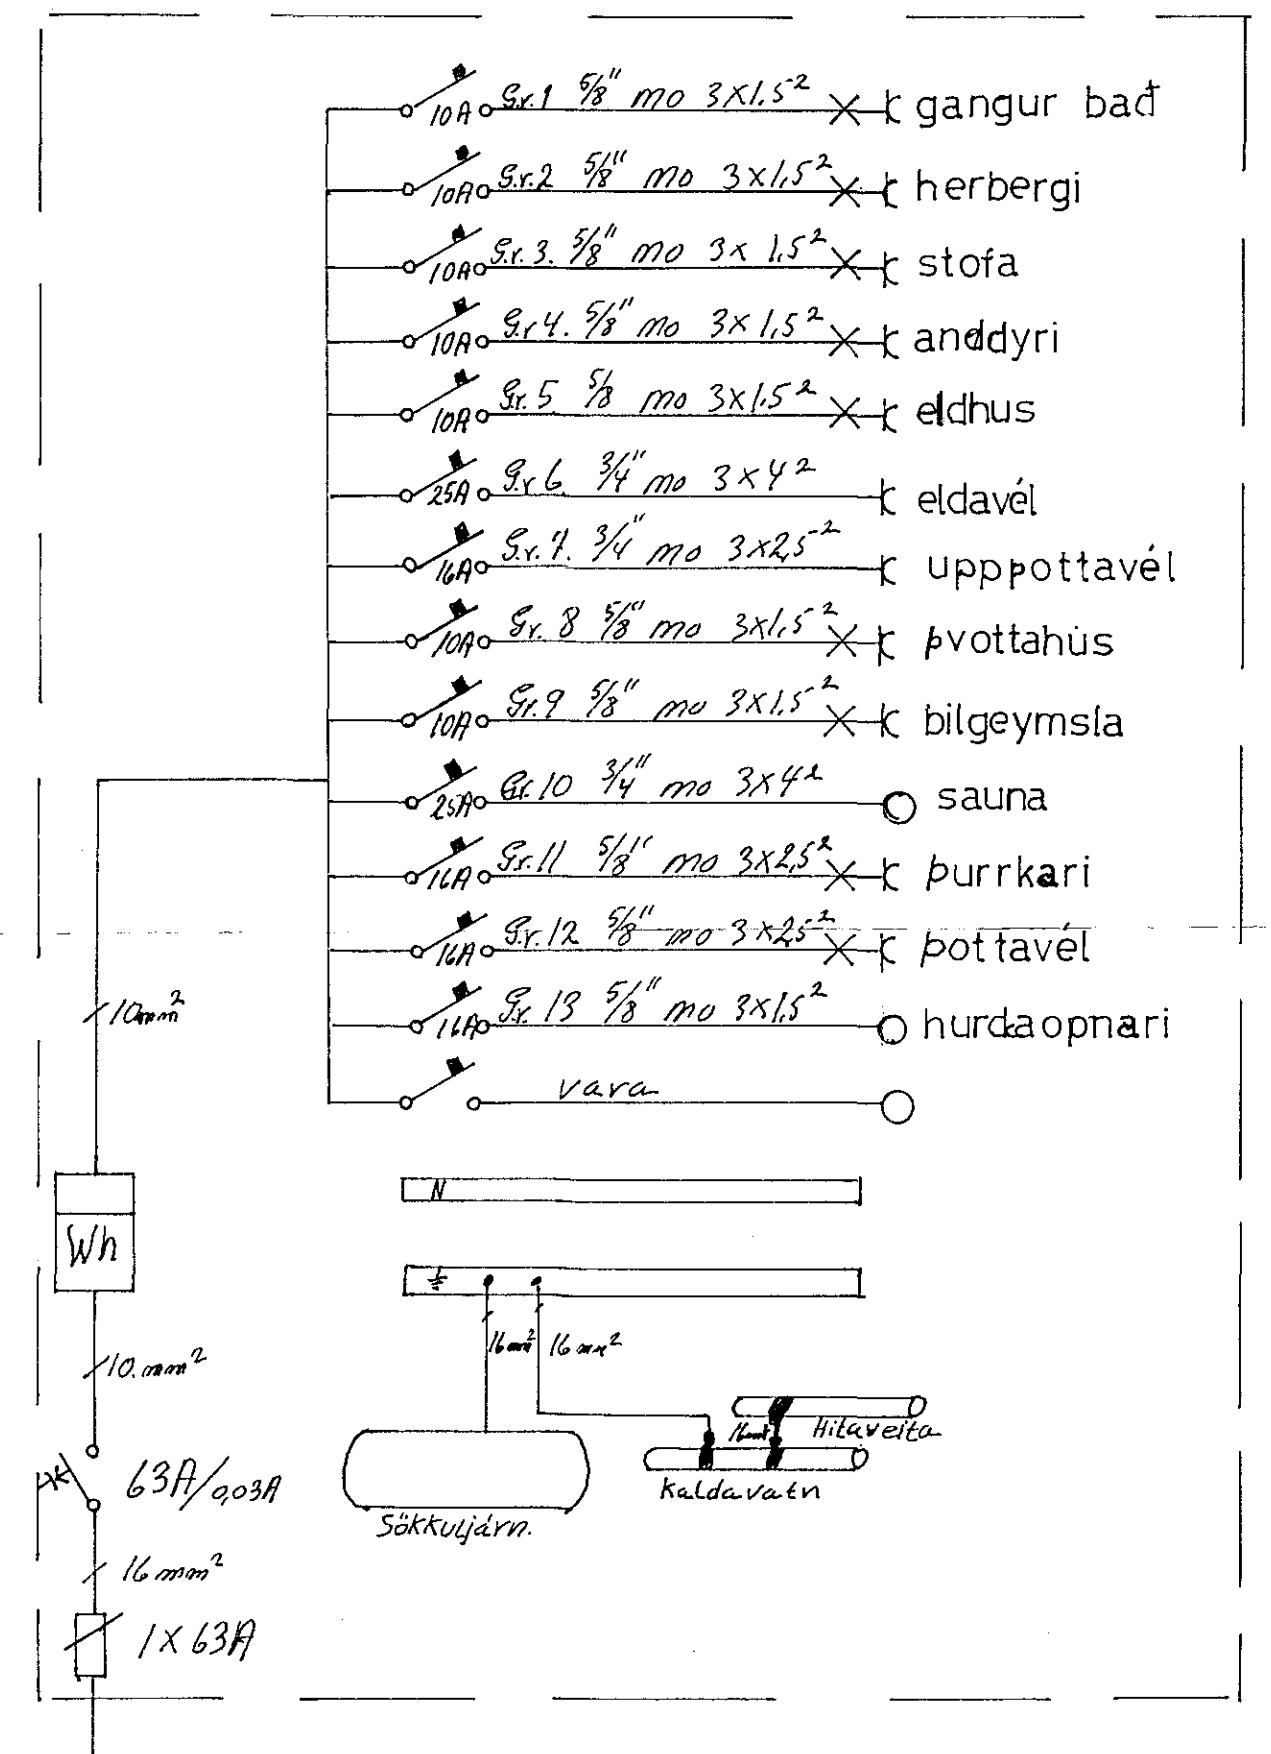 10A Gr.1 5/8" mo 3x1.5² gangur bað
10A Gr.2 5/8" mo 3x1,5² herbergi
10A Gr.3. 5/8" mo 3x1,5² stofa
10A Gr4. 5/8" mo 3x1,5² anddyri
10A Gr.5 5/8 mo 3x1.5² eldhus
25A Gr6. 3/4" mo 3x4² eldavél
16A Gr.7. 3/4" mo 3x2,5² uppþottavél
10A Gr.8 5/8" mo 3x1,5² þvottahús
10A Gr.9 5/8" mo 3x1,5² bilgeymsla
25A Gr.10 3/4" mo 3x4² sauna
16A Gr.11 5/8" mo 3x2,5² þurrkari
16A Gr.12 5/8" mo 3x2,5² þottavél
16A Gr.13 5/8" mo 3x1,5² hurdaopnari
vara
10mm²
N
Wh
16mm² 16mm²
10.mm²
Hitaveita
Kaldavatn
63A/0,03A
Sökkuljárn.
16mm²
1X63A